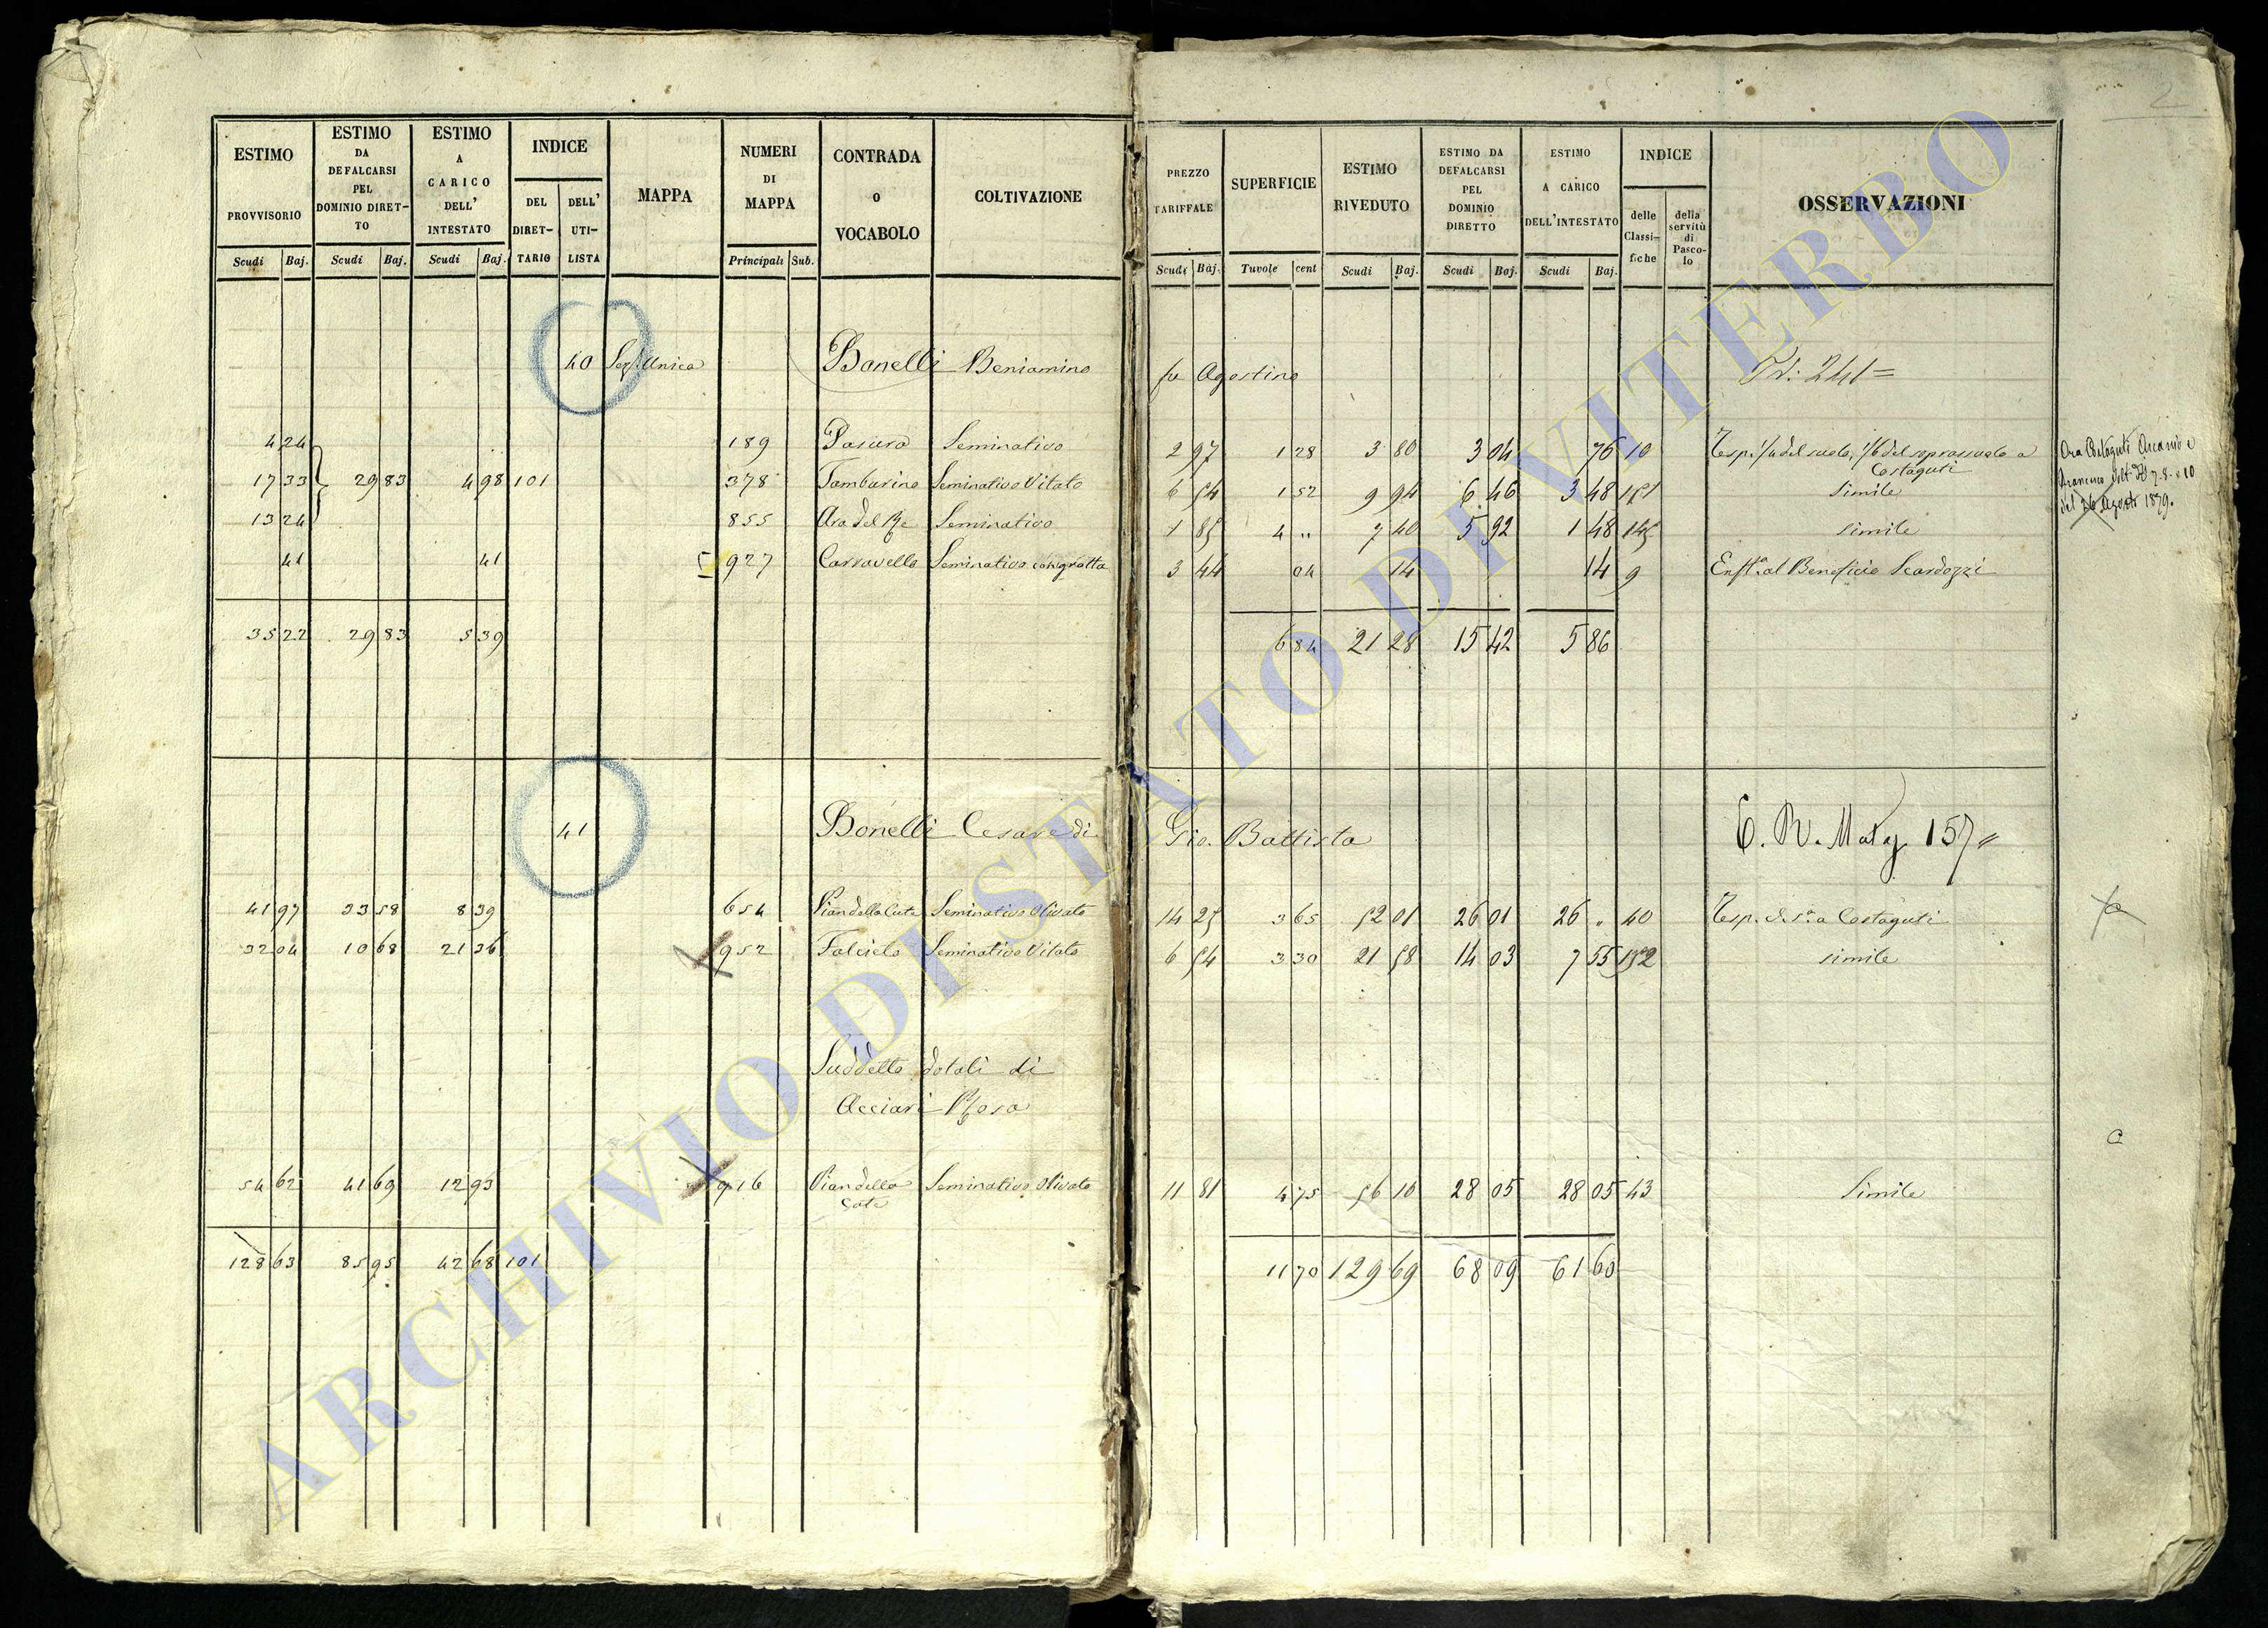 2
ESTIMO PROVVISORIO Scudi Baj.
ESTIMO DA DEFALCARSI PEL DOMINIO DIRET-TO Scudi Baj.
ESTIMO A CARICO DELL' INTESTATO Scudi Baj.
INDICE DEL DIRET-TARIO DELL' UTI-LISTA
MAPPA
NUMERI DI MAPPA Principali Sub.
CONTRADA o VOCABOLO
COLTIVAZIONE
PREZZO TARIFFALE Scudi Baj.
SUPERFICIE Tavole cent
ESTIMO RIVEDUTO Scudi Baj.
ESTIMO DA DEFALCARSI PEL DOMINIO DIRETTO Scudi Baj.
ESTIMO A CARICO DELL'INTESTATO Scudi Baj.
INDICE delle Classi-fiche della servitù di Pasco-lo
OSSERVAZIONI
40 Sez. Unica Bonelli Beniamino fu Agostino
4 24 189 Seminativo 2 97 1 28 3 80 3 04 76 10 Resp. 1/4 del suolo, 1/6 del soprassuolo a Costaguti
17 33 29 83 4 98 101 378 Tamburino Seminativo Vitato 6 54 1 52 9 94 6 46 3 48 151 simile
13 24 855 Ara del Re Seminativo 1 85 4 " 7 40 5 92 1 48 145 simile
41 41 927 Carravello Seminativo con grotta 3 44 04 14 14 9 Enft. al Beneficio Scardozzi
35 22 29 83 5 39 6 84 21 28 15 42 5 86
Ora Costaguti Ascanio e
Francesco
del 26 Agosto 1879.
41 Bonelli Cesare di Gio. Battista 157
41 97 33 58 8 39 654 Pian della Cate Seminativo Olivato 14 25 3 65 52 01 26 01 26 " 40 Resp. d.s.a Costaguti
32 04 10 68 21 36 952 Falciclo Seminativo Vitato 6 54 3 30 21 58 14 03 7 55 152 simile
Suddetto dotali di
Acciari Rosa
54 62 41 69 12 93 916 Pian della Cate Seminativo Olivato 11 81 4 75 56 10 28 05 28 05 43 Simile
128 63 85 95 42 68 101 11 70 129 69 68 09 61 60
ARCHIVIO DI STATO DI VITERBO